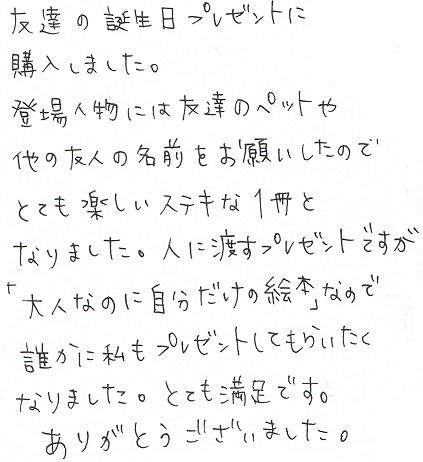 友達の誕生日プレゼントに
購入しました。
登場人物には友達のペットや
他の友人の名前をお願いしたので
とても楽しいステキな1冊と
なりました。人に渡すプレゼントですが
「大人なのに自分だけの絵本」なので
誰かに私もプレゼントしてもらいたく
なりました。とても満足です。
ありがとうございました。